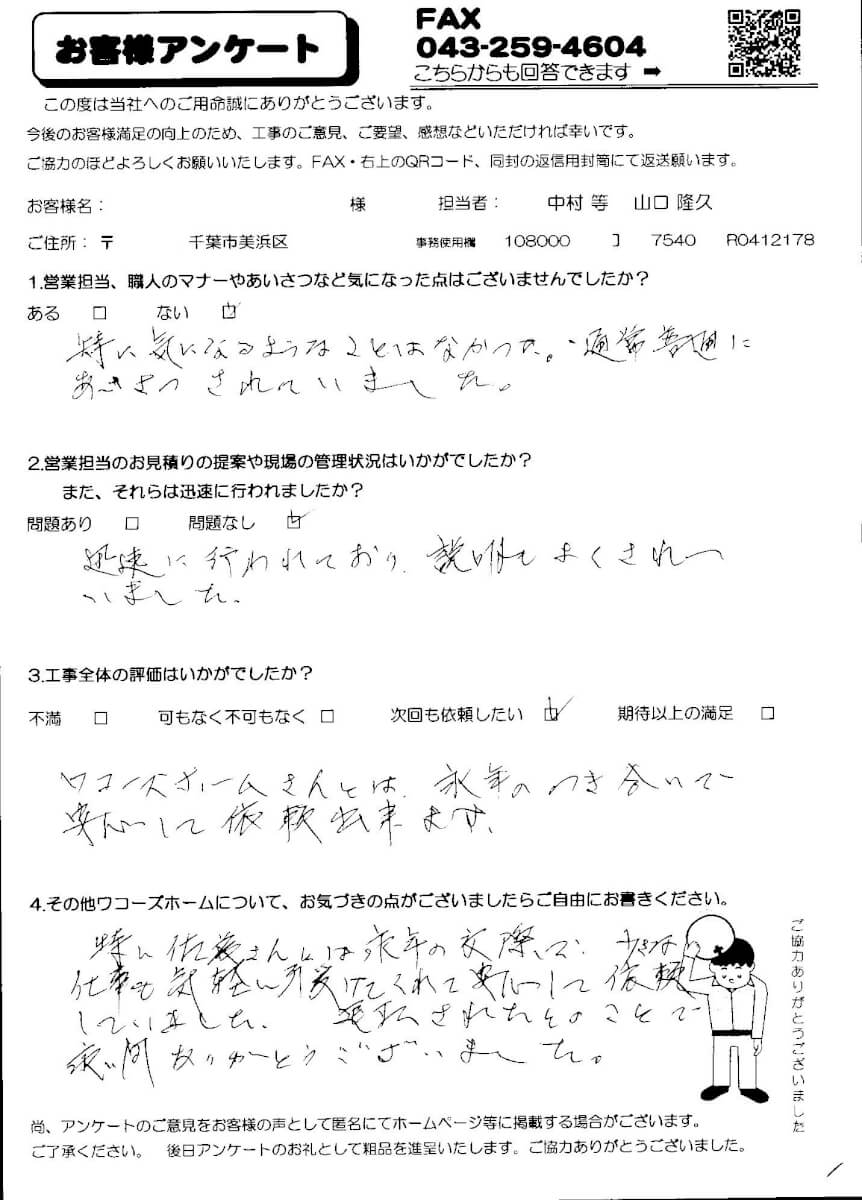 お客様アンケート
FAX
043-259-4604
こちらからも回答できます ➡
この度は当社へのご用命誠にありがとうございます。
今後のお客様満足の向上のため、工事のご意見、ご要望、感想などいただければ幸いです。
ご協力のほどよろしくお願いいたします。FAX・右上のQRコード、同封の返信用封筒にて返送願います。
お客様名： 様 担当者： 中村 等 山口 隆久
ご住所：〒 千葉市美浜区 事務使用欄 108000 コ 7540 R0412178
1.営業担当、職人のマナーやあいさつなど気になった点はございませんでしたか？
ある □ ない ☑
特に気になるようなことはなかった。通常普通に
あいさつされていました。
2.営業担当のお見積りの提案や現場の管理状況はいかがでしたか？
また、それらは迅速に行われましたか？
問題あり □ 問題なし ☑
迅速に行われており、説明もよくされて
いました。
3.工事全体の評価はいかがでしたか？
不満 □ 可もなく不可もなく □ 次回も依頼したい ☑ 期待以上の満足 □
ワコーズホームさんとは、永年のつき合いで
安心して依頼出来ます。
4.その他ワコーズホームについて、お気づきの点がございましたらご自由にお書きください。
特に佐藤さんには永年の交際で、少さな
仕事も気軽に引受けてくれて安心して依頼
していました。 されたそのことで
長い間ありがとうございました。
ご協力ありがとうございました
尚、アンケートのご意見をお客様の声として匿名にてホームページ等に掲載する場合がございます。
ご了承ください。 後日アンケートのお礼として粗品を進呈いたします。ご協力ありがとうございました。